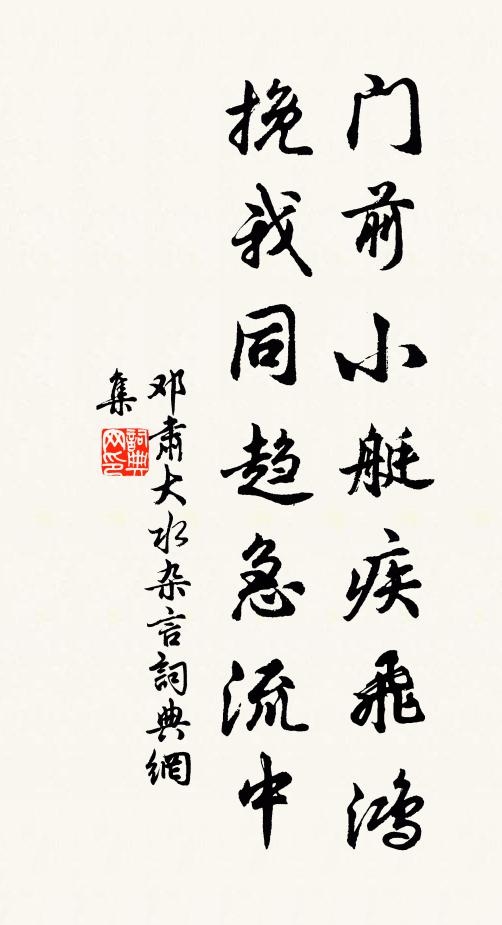 门前小艇疾飛鸿
挽我同趋急流中
邓肃大水杂言詞典網
集
詞典
网印